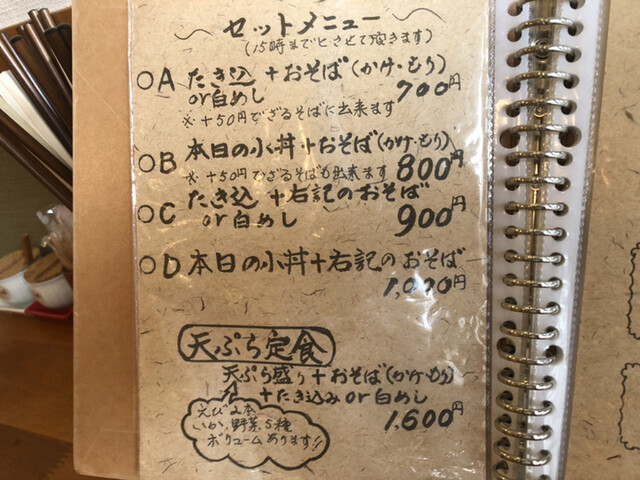 セットメニュー
(15時までとさせて頂きます)
○A たき込 +おそば(かけ・もり)
or白めし 700円
※+50円でざるそばに出来ます
○B 本日の小丼+おそば(かけ・もり)
※+50円でざるそばも出来ます 800円
○C たき込 +右記のおそば
or白めし 900円
○D 本日の小丼+右記のおそば
1,000円
天ぷら定食
天ぷら盛り+おそば(かけ・もり)
+たき込みor白めし
1,600円
えび2本
いか、野菜5種
ボリュームあります!!